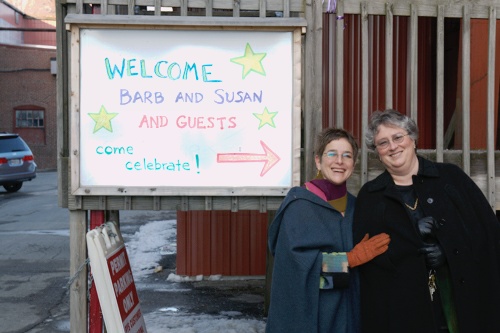 WELCOME
BARB AND SUSAN
AND GUESTS
come
celebrate!
PERMIT
PARKING
ONLY